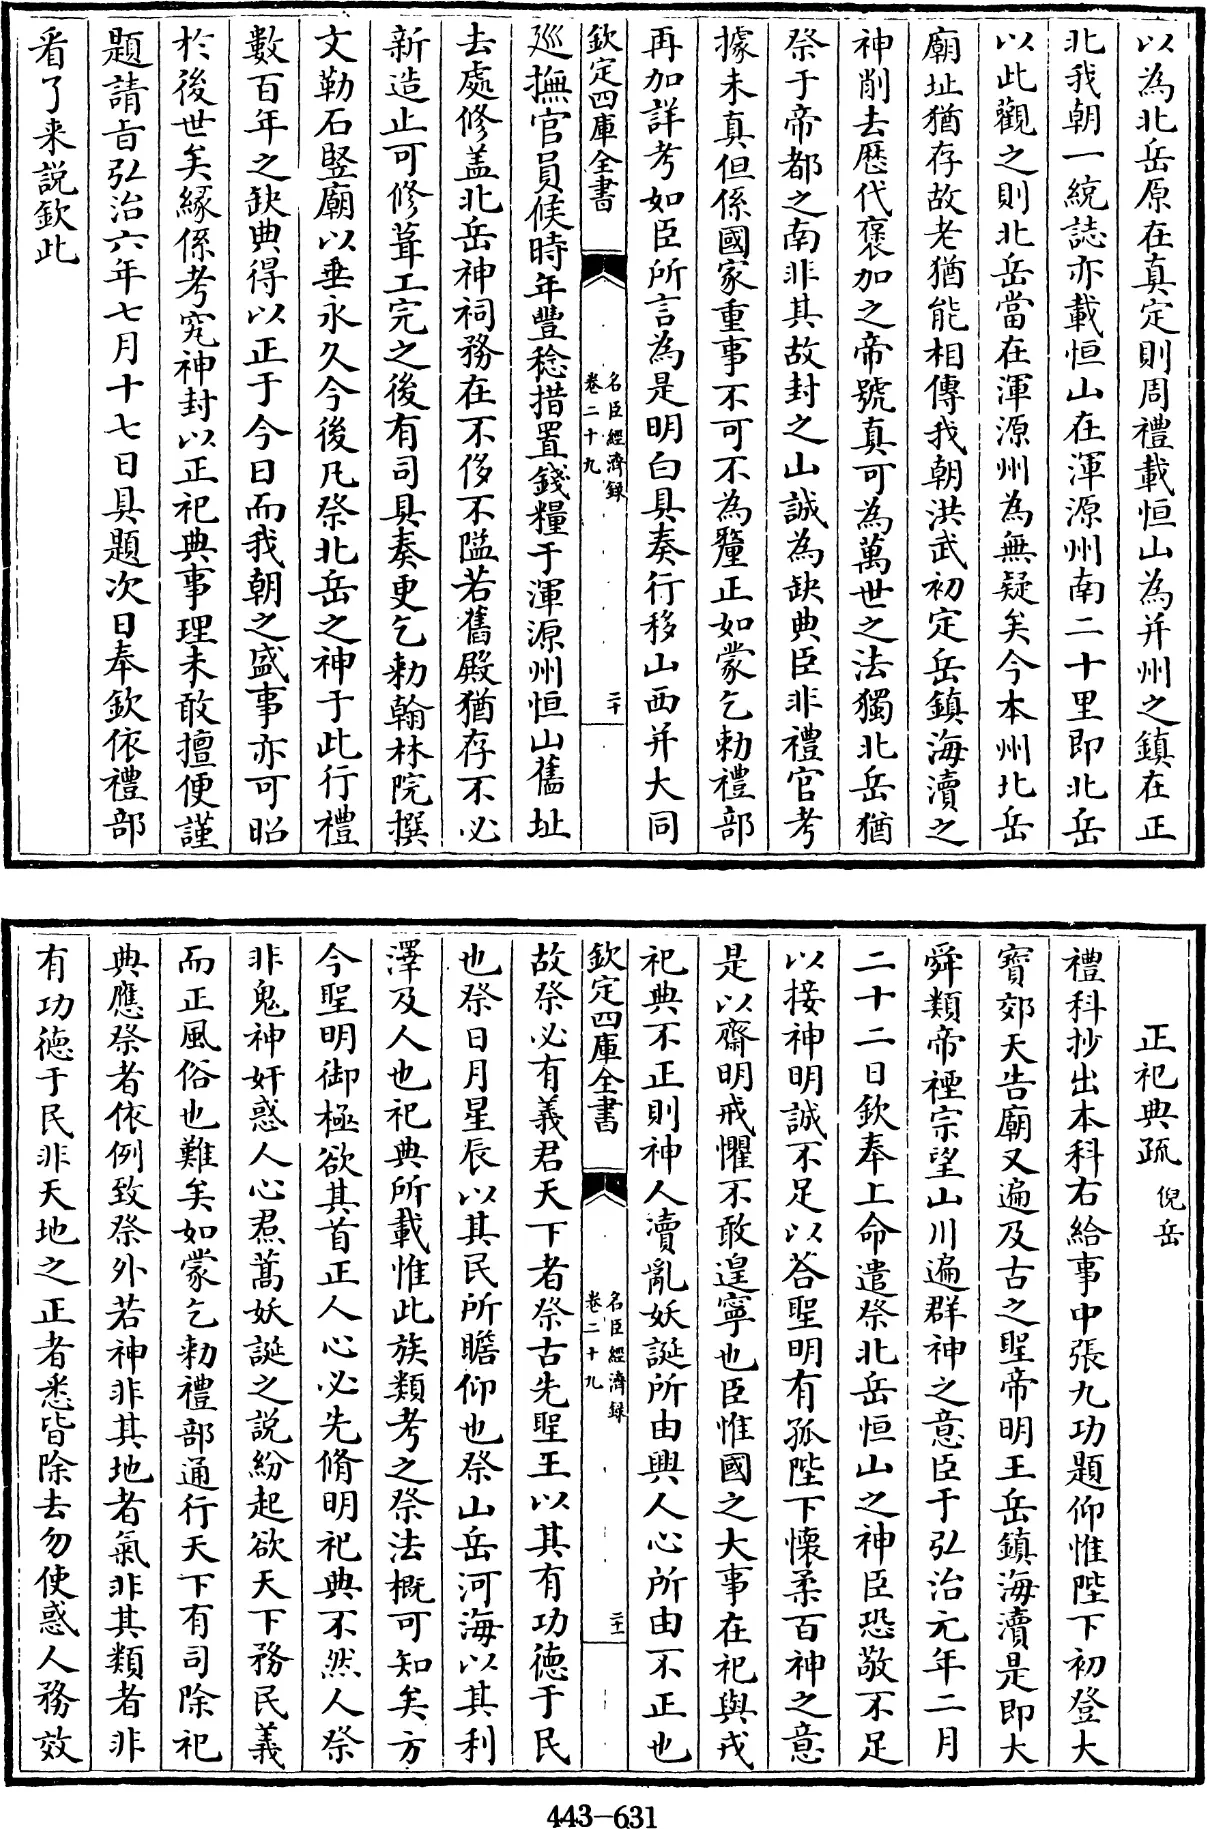 以為北岳原在真定則周禮載恒山為并州之鎮在正
北我朝一統誌亦載恒山在渾源州南二十里即北岳
以此觀之則北岳當在渾源州為無疑矣今本州北岳
廟址猶存故老猶能相傳我朝洪武初定岳鎮海瀆之
神削去歷代褒加之帝號真可為萬世之法獨北岳猶
祭于帝都之南非其故封之山誠為缺典臣非禮官考
據未真但係國家重事不可不為釐正如蒙乞勅禮部
再加詳考如臣所言為是明白具奏行移山西并大同
欽定四庫全書
名臣經濟録
卷二十九
二十
巡撫官員候時年豐稔措置錢糧于渾源州恒山舊址
去處修盖北岳神祠務在不侈不隘若舊殿猶存不必
新造止可修葺工完之後有司具奏更乞勅翰林院撰
文勒石竪廟以垂永久今後凡祭北岳之神于此行禮
數百年之缺典得以正于今日而我朝之盛事亦可昭
於後世矣縁係考究神封以正祀典事理未敢擅便謹
題請旨弘治六年七月十七日具題次日奉欽依禮部
看了来説欽此
正祀典疏 倪岳
禮科抄出本科右給事中張九功題仰惟陛下初登大
寳郊天告廟又遍及古之聖帝明王岳鎮海瀆是即大
舜類帝禋宗望山川遍群神之意臣于弘治元年二月
二十二日欽奉上命遣祭北岳恒山之神臣恐敬不足
以接神明誠不足以荅聖明有孤陛下懐柔百神之意
是以齋明戒懼不敢遑寧也臣惟國之大事在祀與戎
祀典不正則神人瀆亂妖誕所由興人心所由不正也
欽定四庫全書
名臣經濟録
卷二十九
二十一
故祭必有義君天下者祭古先聖王以其有功德于民
也祭日月星辰以其民所瞻仰也祭山岳河海以其利
澤及人也祀典所載惟此族類考之祭法概可知矣方
今聖明御極欲其首正人心必先脩明祀典不然人祭
非鬼神奸惑人心焄蒿妖誕之説紛起欲天下務民義
而正風俗也難矣如蒙乞勅禮部通行天下有司除祀
典應祭者依例致祭外若神非其地者氣非其類者非
有功德于民非天地之正者悉皆除去勿使惑人務效
443-631